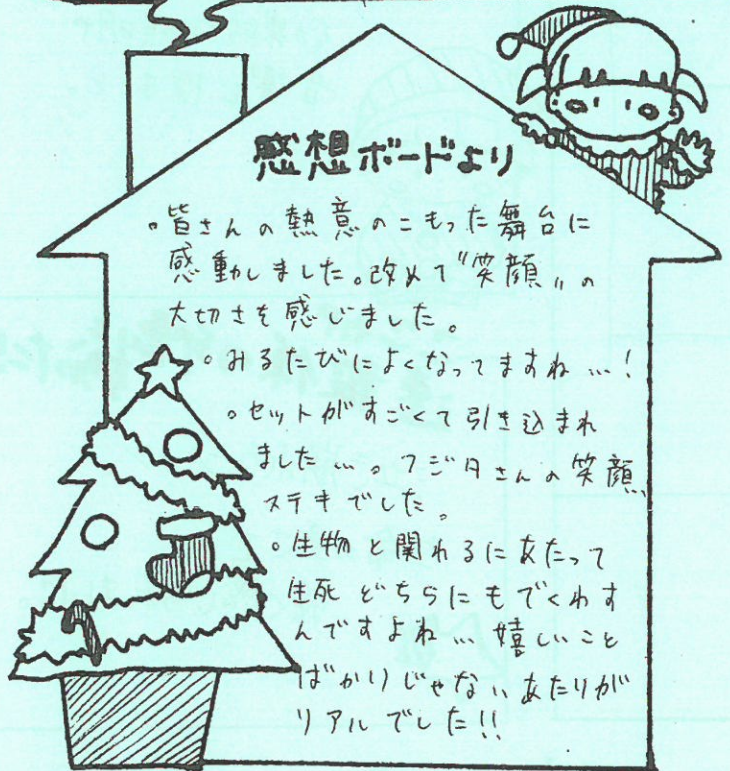 感想ボードより
。皆さんの熱意のこもった舞台に
感動しました。改めて"笑顔"の
大切さを感じました。
。みるたびによくなってますね…!
。セットがすごくて引き込まれ
ました…。フジタさんの笑顔
ステキでした。
。生物と関れるにあたって
生死どちらにもでくわす
んですよね…嬉しいこと
ばかりじゃないあたりが
リアルでした!!